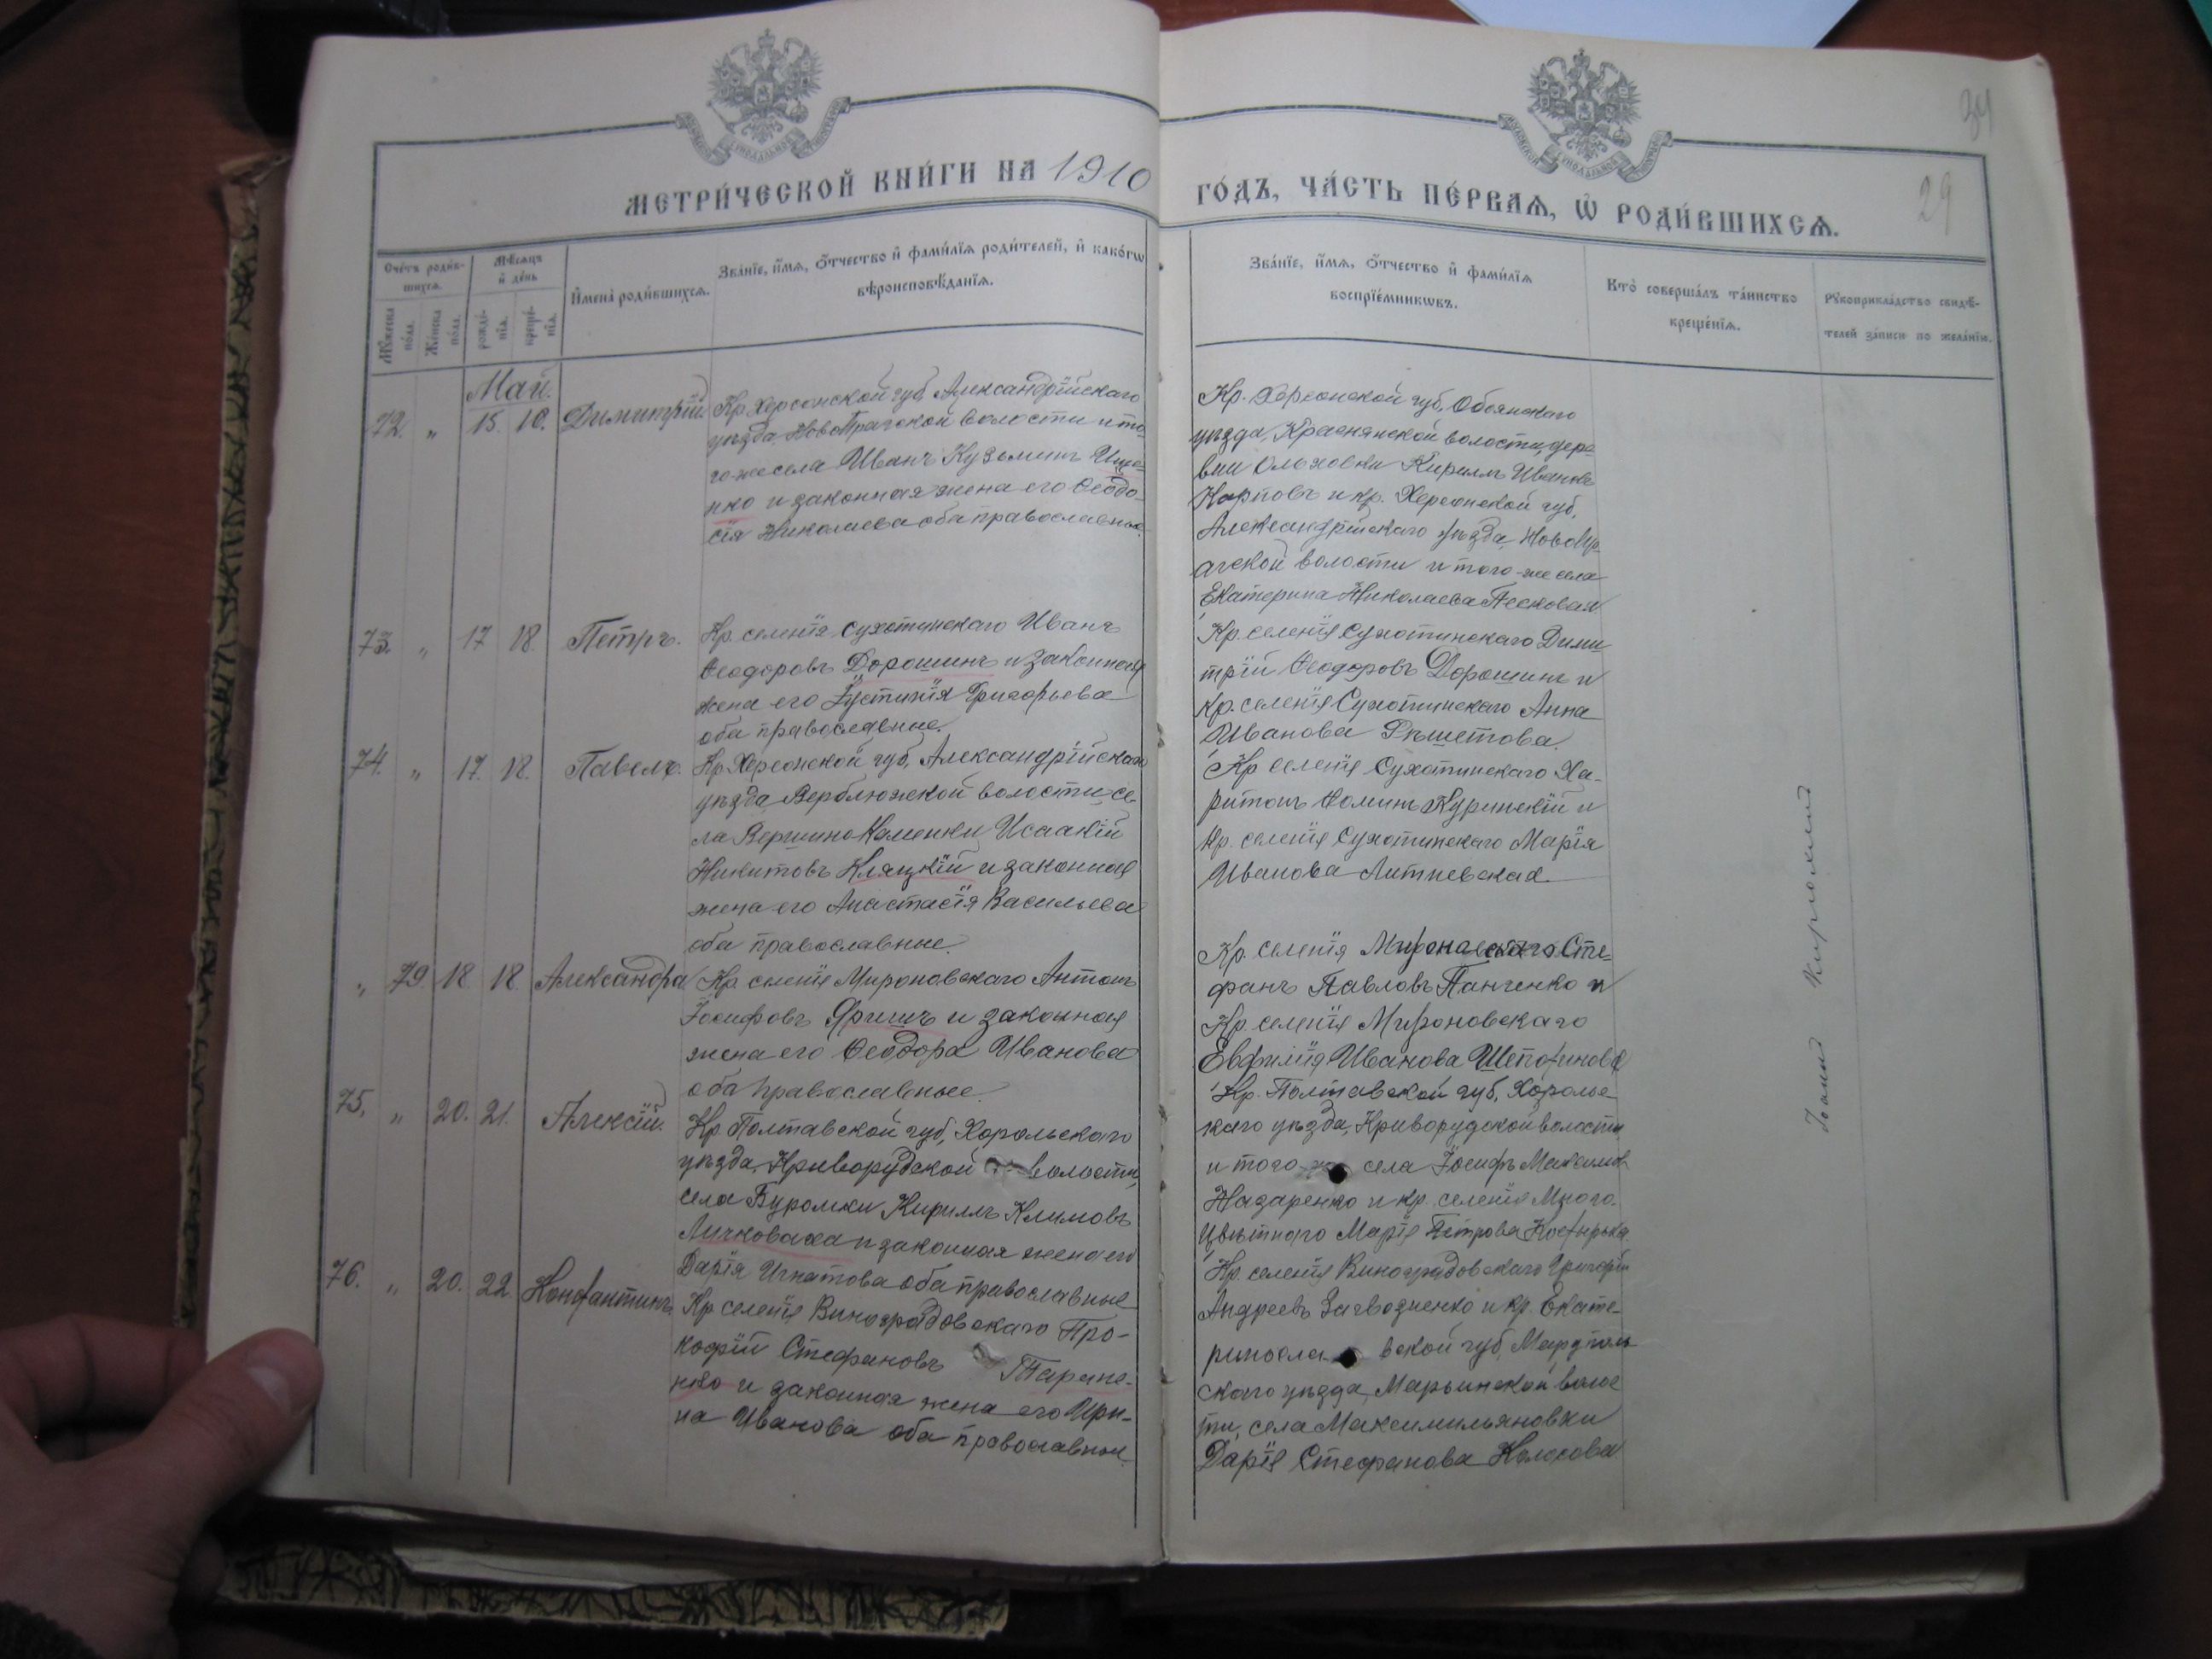 34
29
МЕТРИ́ЧЕСКОЙ КНИ́ГИ НА 1910
ГО́ДЪ, ЧА́СТЬ ПЕ́РВАѦ, Ѡ РОДИ́ВШИХСѦ.
Сче́тъ роди́в-
шихсѧ.
Мꙋ́жеска по́ла.
Же́нска по́ла.
Мѣ́сяцъ
и де́нь
рожде́-
нїѧ.
креще́-
нїѧ.
Имена̀ роди́вшихсѧ.
Зва́нїе, и́мѧ, ѻ́тчество и фами́лїѧ роди́телей, и како́гѡ
вѣроисповѣ́данїѧ.
Зва́нїе, и́мѧ, ѻ́тчество и фами́лїѧ
воспрїе́мникѡвъ.
Кто̀ соверша́лъ та́инство
креще́нїѧ.
Рꙋкоприкла́дство свидѣ́-
телей за́писи по жела́нїю.
Май.
72. „ 15. 16. Димитрій.
Кр. Херсонской губ, Александрійскаго
уѣзда, НовоПрагской волости и то-
го-же села Иванъ Кузьминъ Ище-
нко и законная жена его Ѳеодо-
сія Николаева оба православные.
Кр. Херсонской губ, Обоянскаго
уѣзда, Краснянской волости, дере-
вни Ольховки Кириллъ Ивановъ
Карповъ и кр. Херсонской губ,
Александрійскаго уѣзда, НовоПр-
агской волости и того-же села
Екатерина Николаева Песковая
73. „ 17 18. Петръ.
Кр. селенія Сухотинскаго Иванъ
Ѳеодоровъ Дорошинъ и законная
жена его Іустинія Григорьева
оба православные.
Кр. селенія Сухотинскаго Дими-
трій Ѳеодоровъ Дорошинъ и
кр. селенія Сухотинскаго Анна
Иванова Рѣшетова.
74. „ 17. 18. Павелъ.
Кр. Херсонской губ, Александрійскаго
уѣзда Верблюжской волости, се-
ла Вершино Каменки Исаакій
Никитовъ Кляцкій и законная
жена его Анастасія Васильева
оба православные.
Кр селенія Сухотинскаго Ха-
ритонъ Ѳоминъ Куринскій и
кр. селенія Сухотинскаго Марія
Иванова Литневская.
„ 79 18. 18. Александра
Кр. селенія Мироновскаго Антонъ
Іосифовъ Яришъ и законная
жена его Ѳеодора Иванова
оба православные.
Кр. селенія Мироновскаго Сте-
фанъ Павловъ Панченко и
Кр. селенія Мироновскаго
Евфимія Иванова
75. „ 20. 21. Алексій.
Кр. Полтавской губ, Хорольскаго
уѣзда, Криворудской волости,
села Буромки Кириллъ Климовъ
Личковаха и законная жена его
Дарія Игнатова оба православные
Кр. Полтавской губ, Хорольс-
каго уѣзда, Криворудской волости,
и того-же села Іосифъ Максимовъ
Назаренко и кр. селенія Много-
цвѣтнаго Марія Петрова
76. „ 20. 22. Константинъ.
Кр селенія Виноградовскаго Про-
кофій Стефановъ Таране-
нко и законная жена его Ири-
на Иванова оба православные.
Кр. селенія Виноградовскаго Григорій
Андреевъ Загвозденко и кр. Екате-
ринославской губ, Маріуполь-
скаго уѣзда, Марьинской волос-
ти, села Максимильяновки
Дарія Стефанова Колосова.